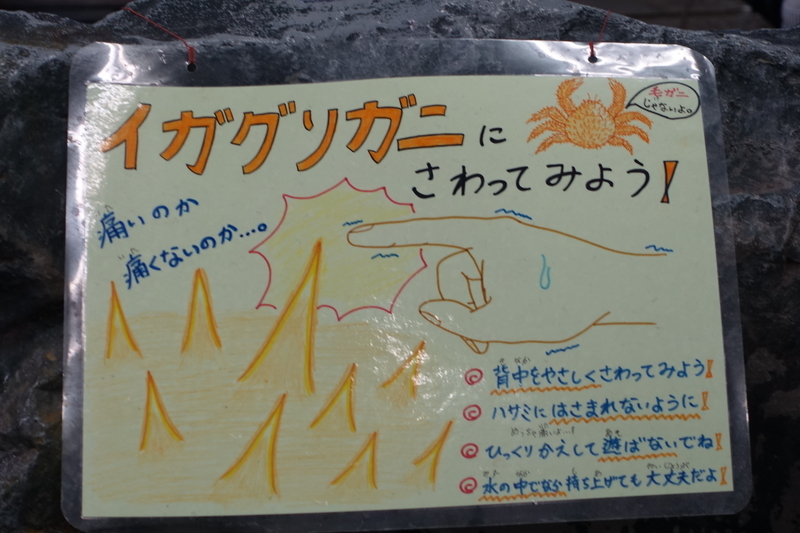 イガグリガニに
毛ガニ
じゃないよ。
さわってみよう!
痛いのか
痛くないのか…。
背中をやさしくさわってみよう!
ハサミにはさまれないように!
めっちゃ痛いよ…!
ひっくりかえして遊ばないでね!
水の中でなら持ち上げても大丈夫だよ!